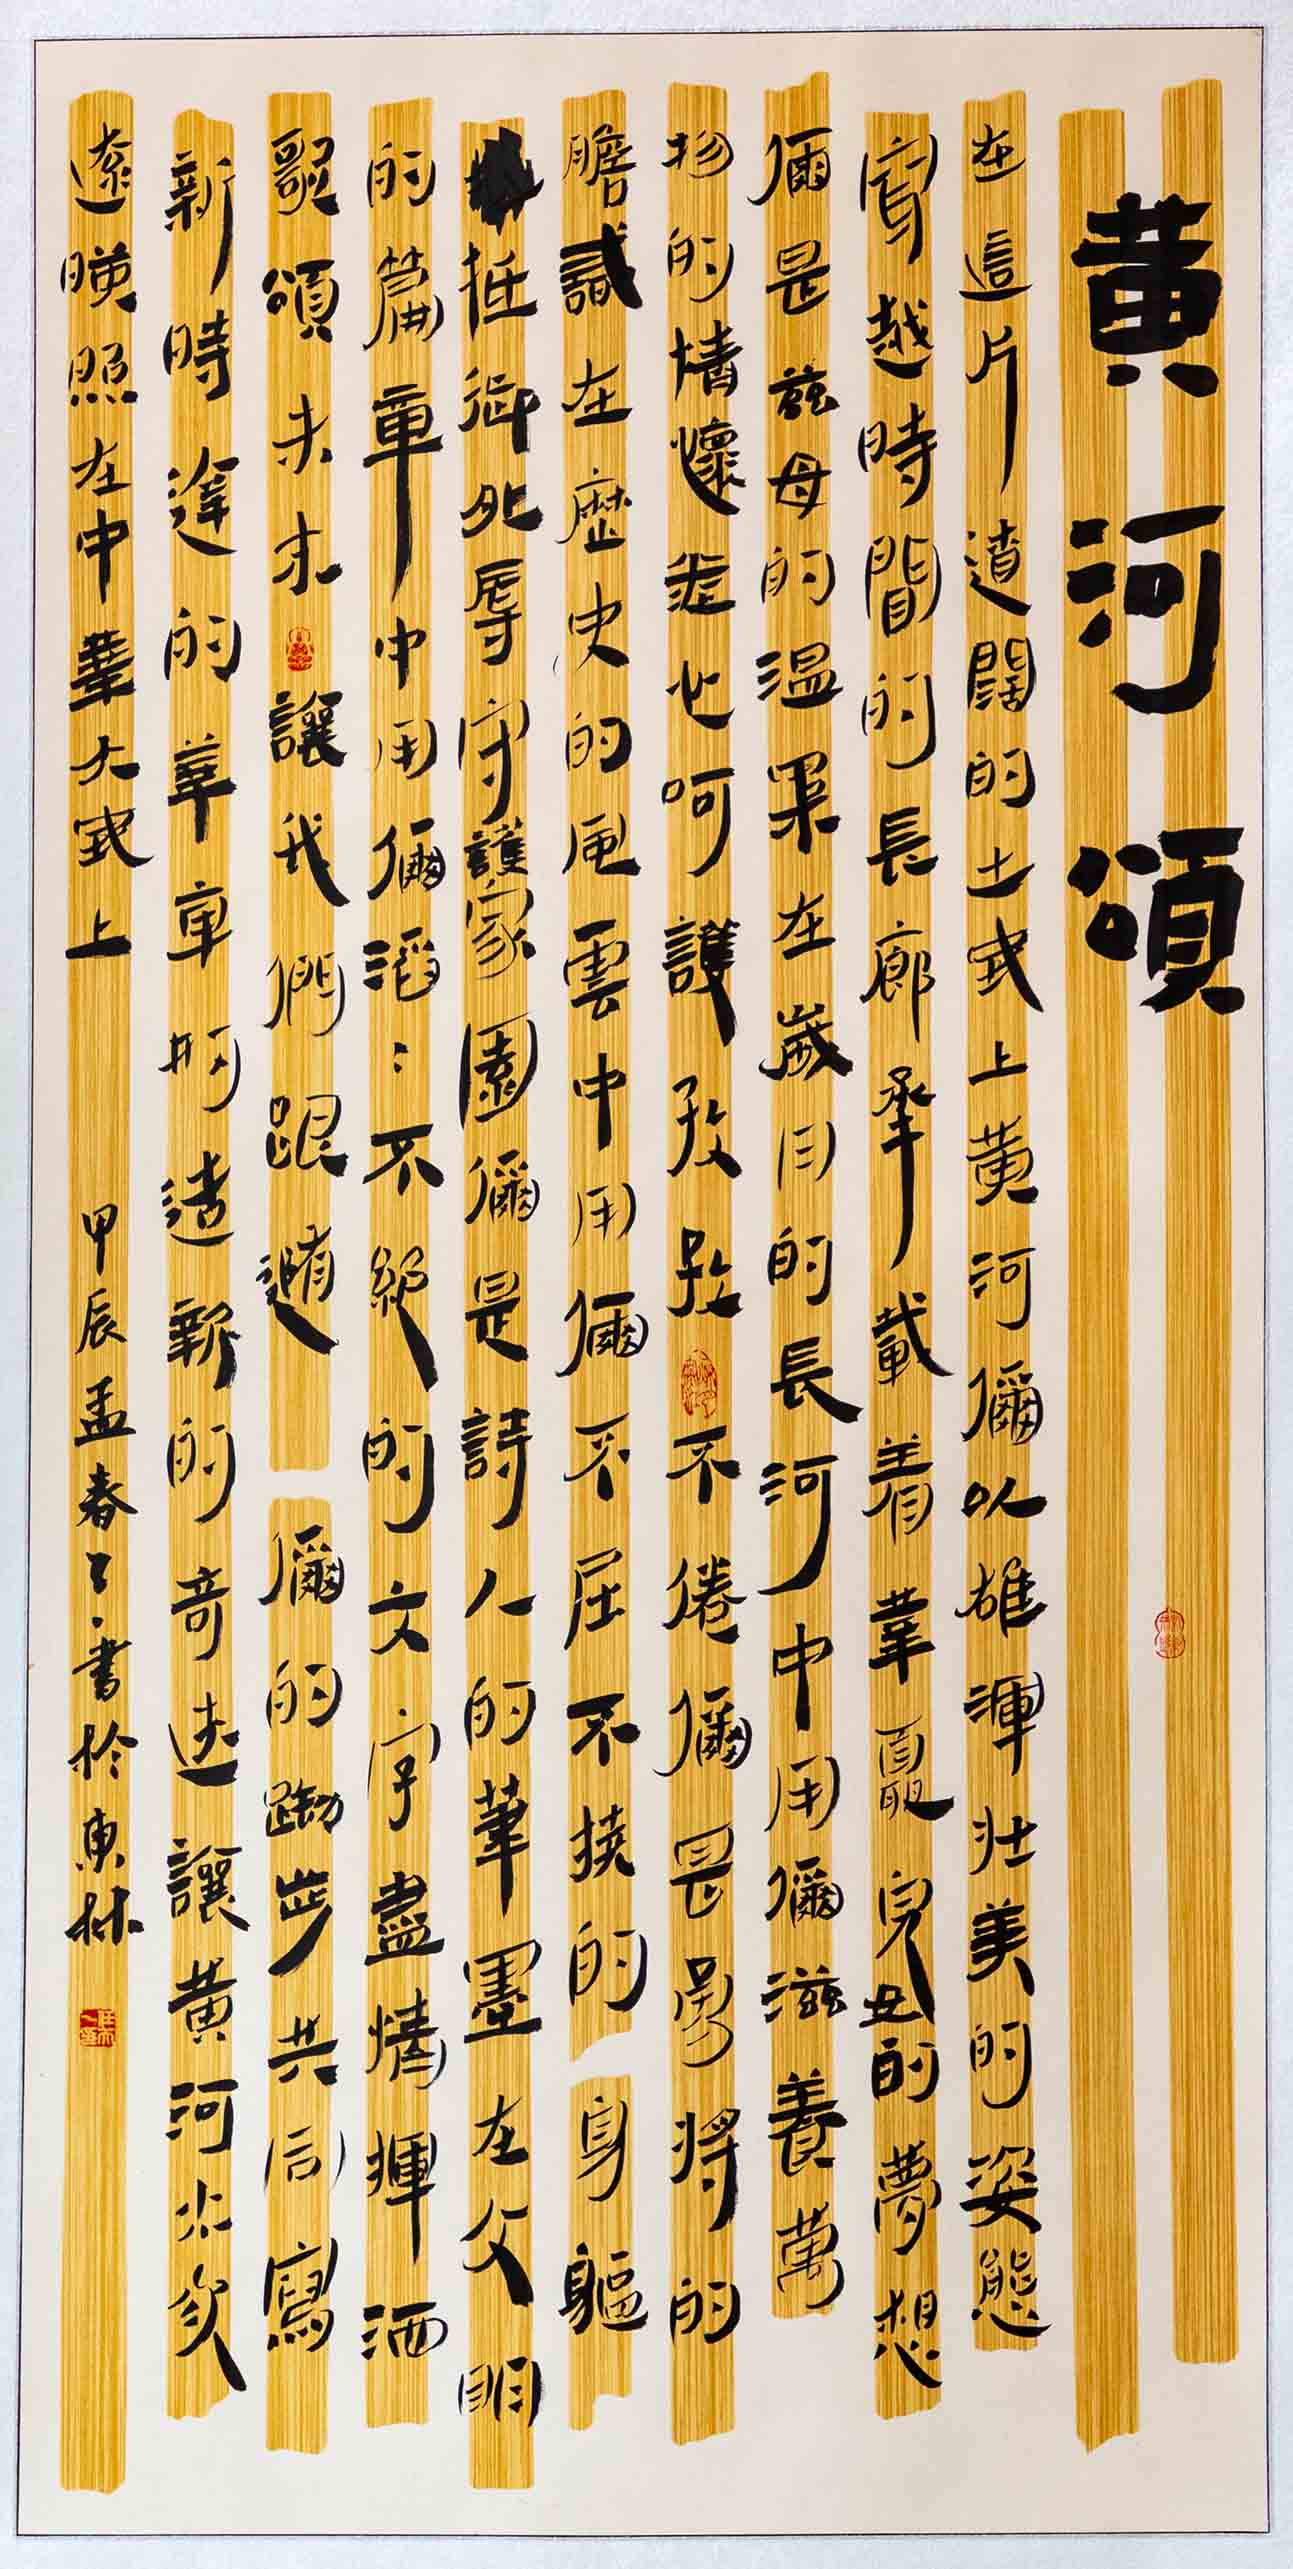 黃河頌
在這片遼闊的土地上黃河儞以雄渾壯美的姿態
穿越時間的長廊承載着華夏兒女的夢想
儞是慈母的溫柔在歲月的長河中用儞滋養萬
物的情懷無止呵護孜孜不倦儞是勇將的
膽識在歷史的風雲中用儞不屈不撓的身軀
抵御外辱守護家園儞是詩人的筆墨在文明
的篇章中用儞滔:不絕的文字盡情揮洒
歌頌未来讓我們跟隨儞的腳步共同寫
新時達的華章所造新的奇迹讓黃河水永
遠暎照在中華大地上
甲辰孟春書於東林